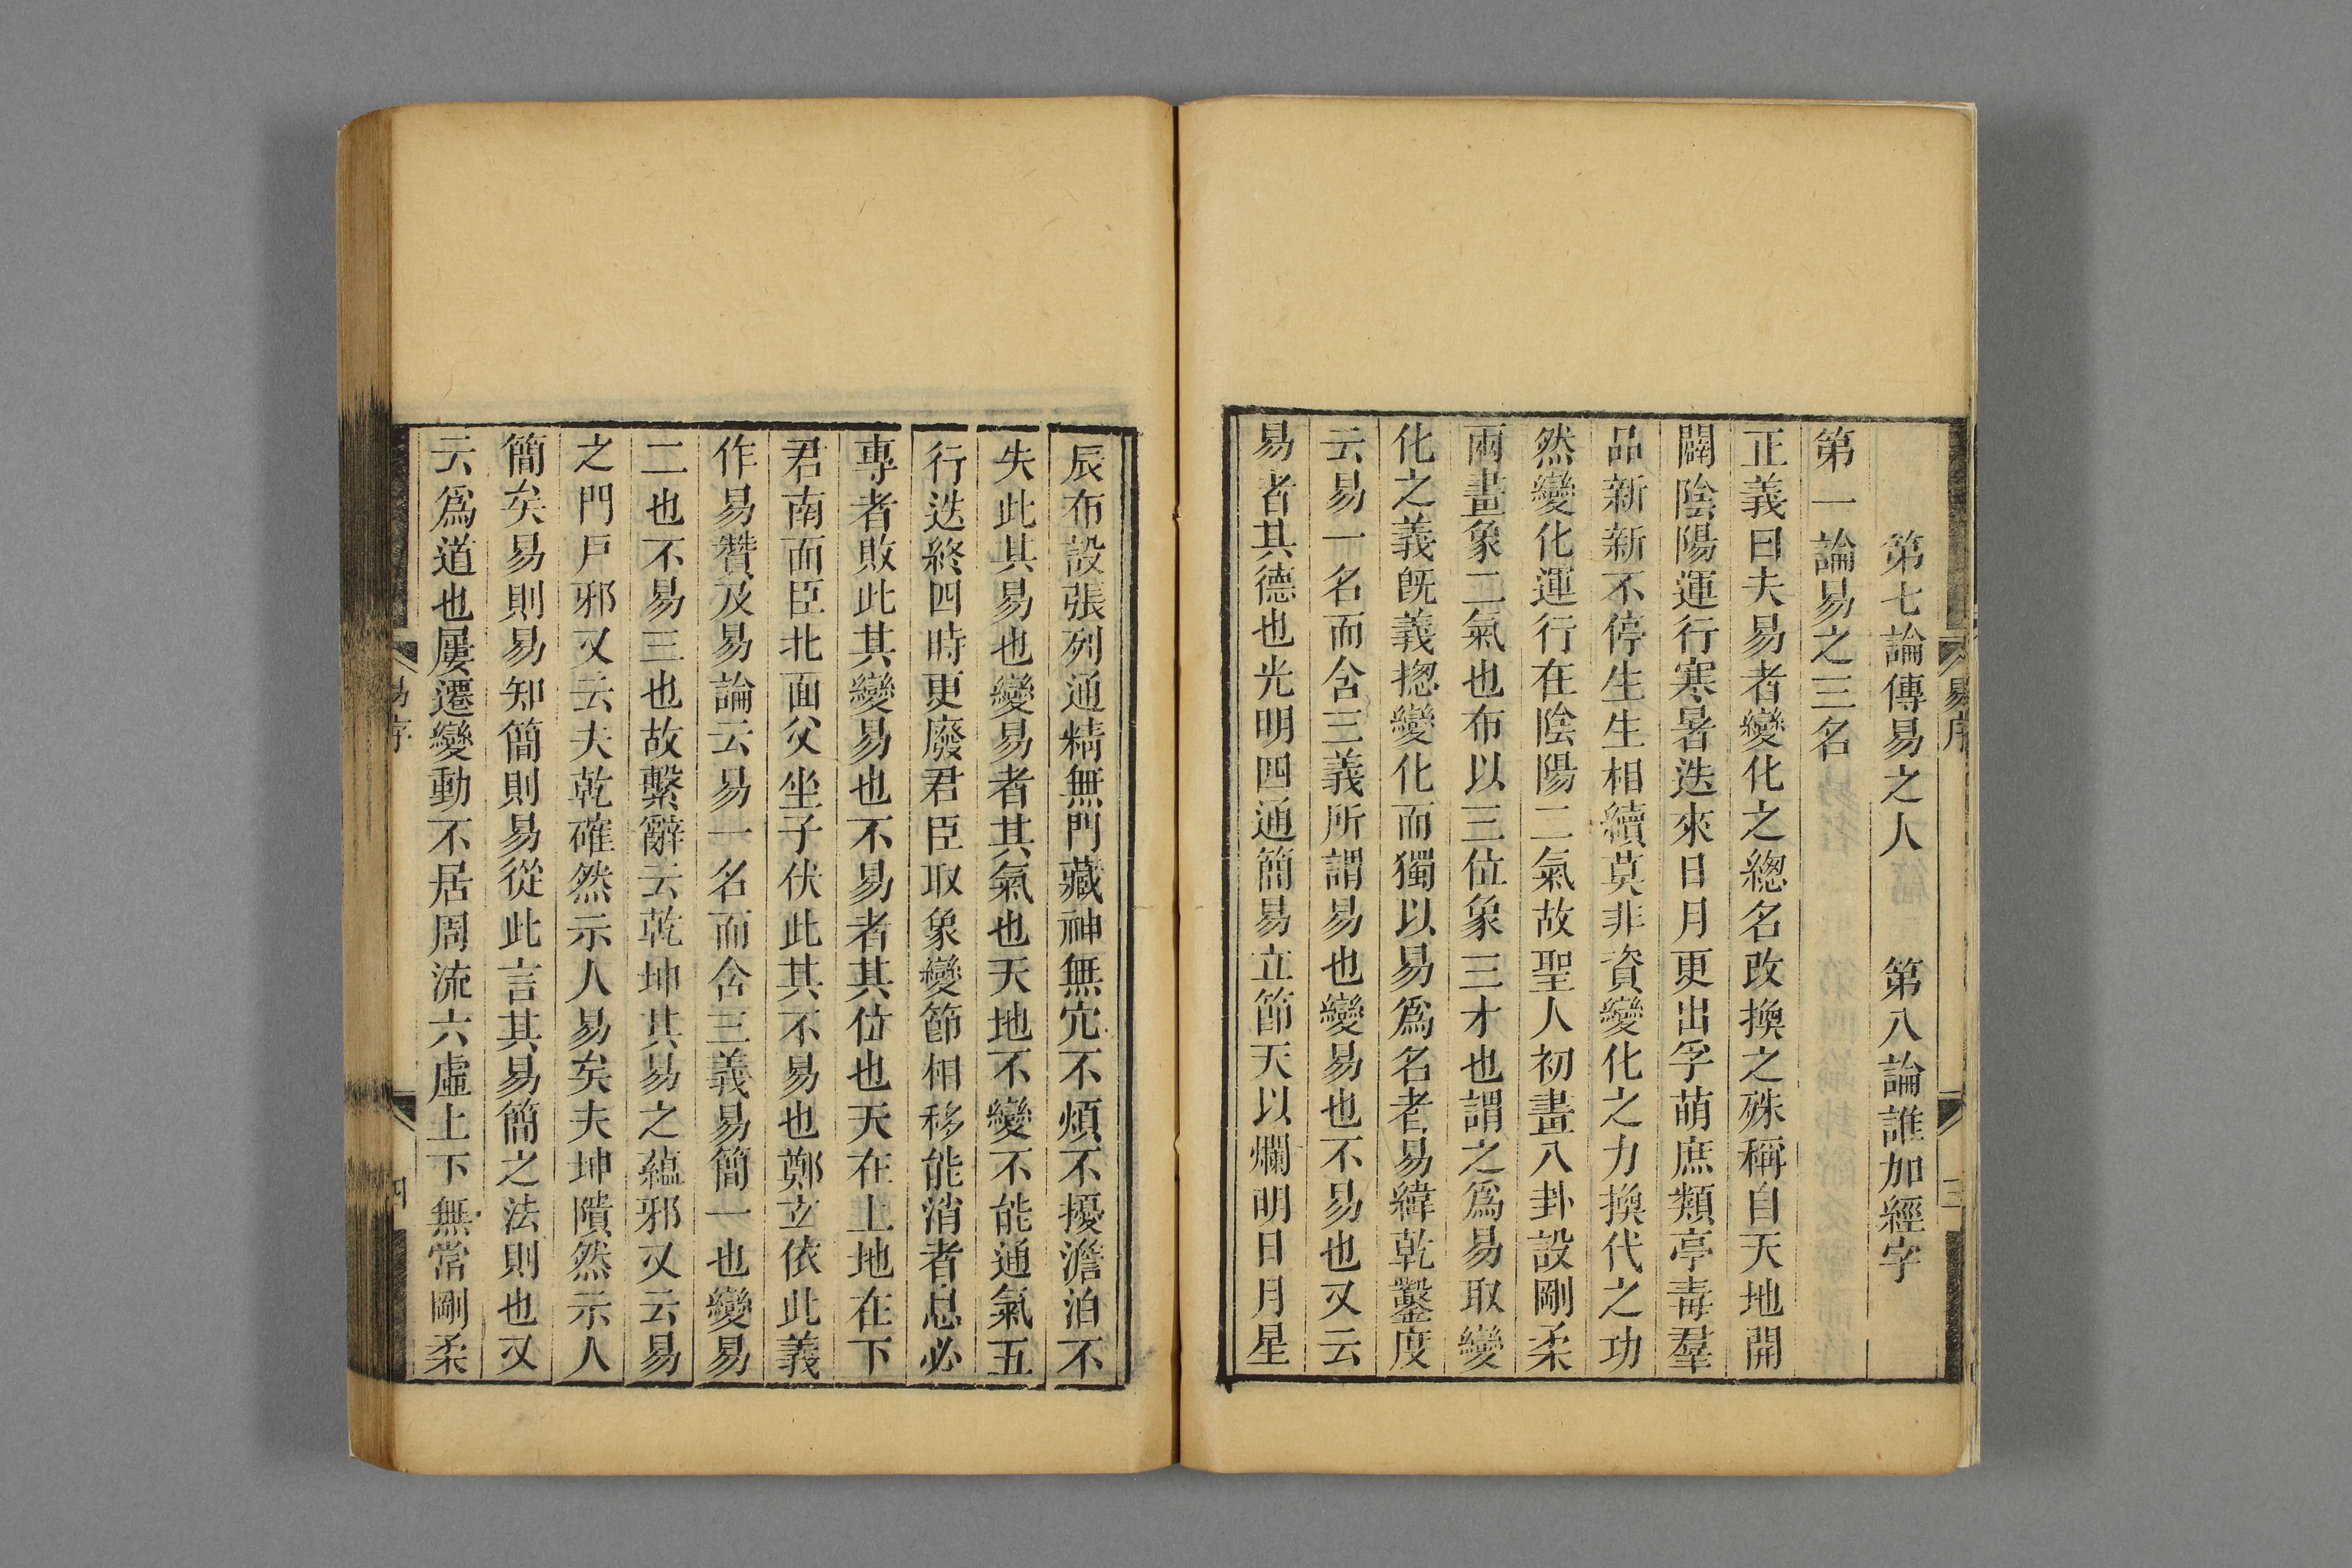 易序
三
第七論傳易之人　第八論誰加經字
第一論易之三名
正義曰夫易者變化之緫名改換之殊稱自天地開
闢陰陽運行寒暑迭來日月更出孚萌庶類亭毒羣
品新新不停生生相續莫非資變化之力換代之功
然變化運行在陰陽二氣故聖人初畫八卦設剛柔
兩畫象二氣也布以三位象三才也謂之爲易取變
化之義旣義揔變化而獨以易爲名者易緯乾鑿度
云易一名而含三義所謂易也變易也不易也又云
易者其德也光明四通簡易立節天以爛明日月星
辰布設張列通精無門藏神無穴不煩不擾澹泊不
失此其易也變易者其氣也天地不變不能通氣五
行迭終四時更廢君臣取象變節相移能消者息必
專者敗此其變易也不易者其位也天在上地在下
君南面臣北面父坐子伏此其不易也鄭玄依此義
作易贊及易論云易一名而含三義易簡一也變易
二也不易三也故繫辭云乾坤其易之蘊邪又云易
之門戶邪又云夫乾確然示人易矣夫坤隤然示人
簡矣易則易知簡則易從此言其易簡之法則也又
云爲道也屢遷變動不居周流六虛上下無常剛柔
易序
四